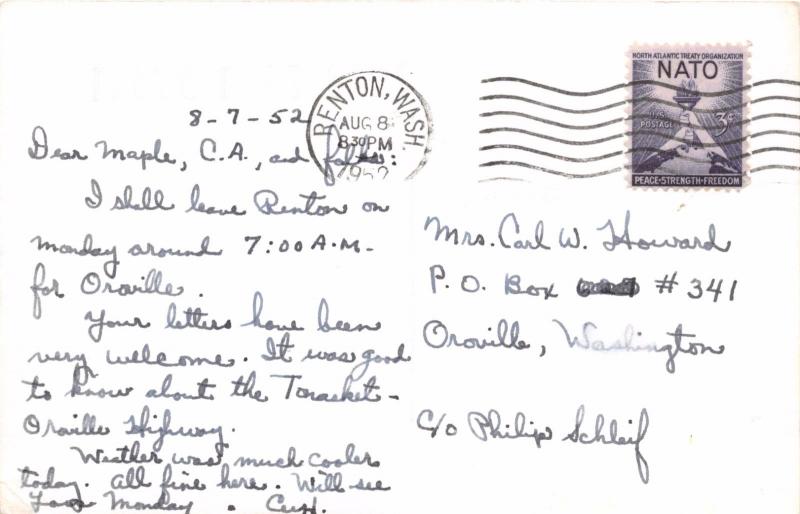 8-7-52
Dear Maple, C.A., and folks:
I shall leave Renton on
Monday around 7:00 A.M.-
for Oroville.
Your letters have been
very welcome. It was good
to know about the Tonasket-
Oroville Highway.
Weather was much cooler
today. All fine here. Will see
Monday.
RENTON, WASH.
AUG 8
8 30 PM
1952
NORTH ATLANTIC TREATY ORGANIZATION
NATO
U.S. POSTAGE
3¢
PEACE·STRENGTH·FREEDOM
Mrs. Carl W. Howard
P. O. Box # 341
Oroville, Washington
c/o Philip Schleif